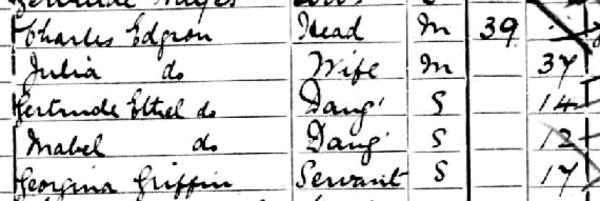 Charles Edgson Head M 39
Julia do Wife M 37
Gertrude Ethel do Daug' S 14
Mabel do Daug' S 12
Georgina Griffin Servant S 17